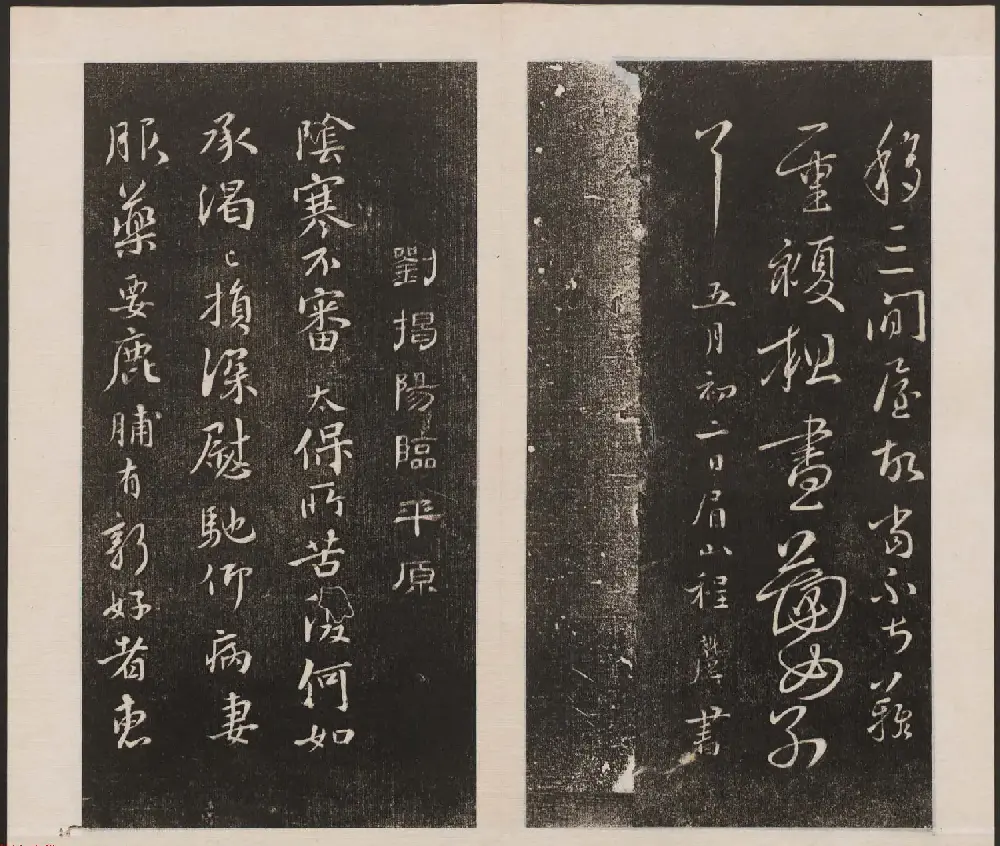 移三間屋故當不知 難
重複粗畫 兩子
了
五月初二日眉山程 書
劉揭陽臨平原
陰寒不審太保所苦 何如
承渴已損深慰馳仰病妻
服藥要鹿脯有新好者惠